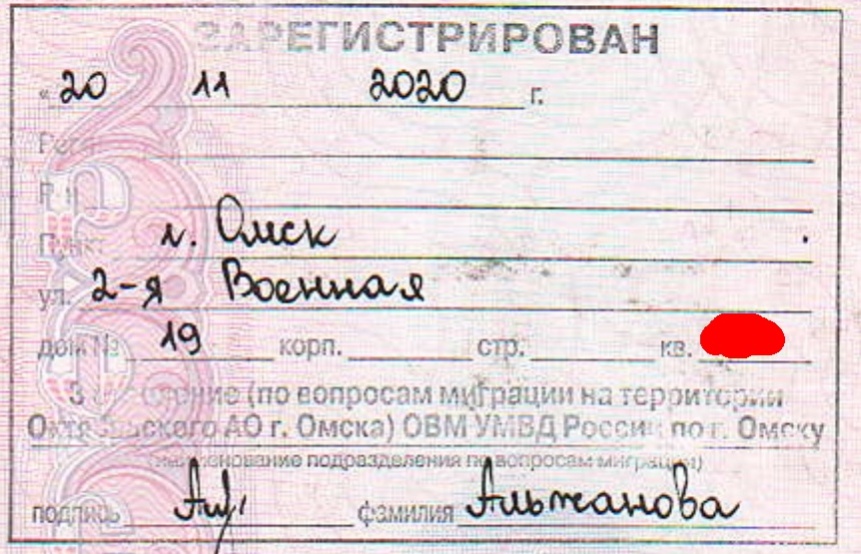 ЗАРЕГИСТРИРОВАН
« 20 11 2020 г.
Пункт г. Омск
ул. 2-я Военная
дом № 19 корп. стр. кв.
3 отделение (по вопросам миграции на территории
Октябрьского АО г. Омска) ОВМ УМВД России по г. Омску
(наименование подразделения по вопросам миграции)
подпись фамилия Альжанова